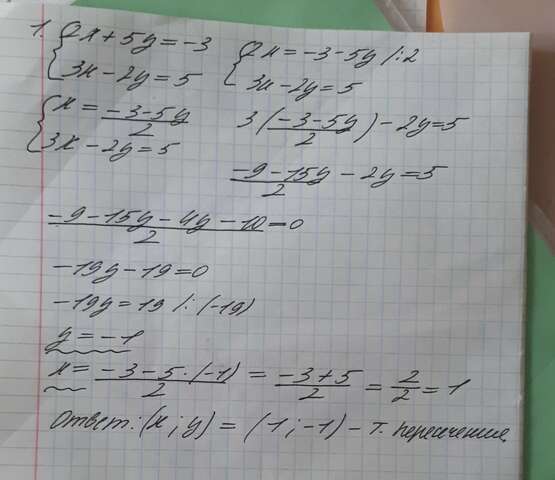 1. { 2x + 5y = -3 { 2x = -3 - 5y /:2
3x - 2y = 5 3x - 2y = 5
{ x = (-3 - 5y)/2 3((-3 - 5y)/2) - 2y = 5
3x - 2y = 5
(-9 - 15y)/2 - 2y = 5
(-9 - 15y - 4y - 10)/2 = 0
-19y - 19 = 0
-19y = 19 /:(-19)
y = -1
x = (-3 - 5·(-1))/2 = (-3 + 5)/2 = 2/2 = 1
Ответ: (x; y) = (1; -1) - т. пересечения